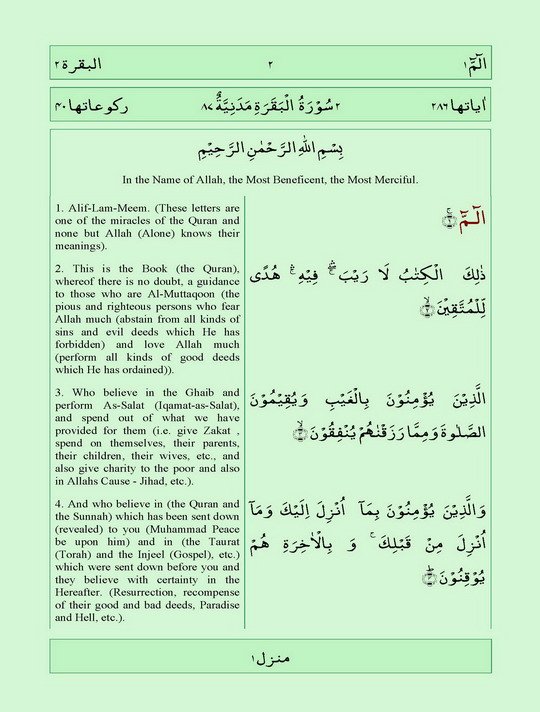 الٓمّٓ ١ ٢ البقرة ٢
اٰیاتها ٢٨٦ ٢ سُوْرَةُ الْبَقَرَةِ مَدَنِیَّةٌ ٨٧ ركوعاتها ٤٠
بِسْمِ اللهِ الرَّحْمٰنِ الرَّحِيْمِ
In the Name of Allah, the Most Beneficent, the Most Merciful.
1. Alif-Lam-Meem. (These letters are
one of the miracles of the Quran and
none but Allah (Alone) knows their
meanings).
الٓمّٓ ۚ﴿۱﴾
2. This is the Book (the Quran),
whereof there is no doubt, a guidance
to those who are Al-Muttaqoon (the
pious and righteous persons who fear
Allah much (abstain from all kinds of
sins and evil deeds which He has
forbidden) and love Allah much
(perform all kinds of good deeds
which He has ordained)).
ذٰلِكَ الْكِتٰبُ لَا رَيْبَ ۛۖ فِيْهِ ۛۚ هُدًى
لِّلْمُتَّقِيْنَ ۙ﴿۲﴾
3. Who believe in the Ghaib and
perform As-Salat (Iqamat-as-Salat),
and spend out of what we have
provided for them (i.e. give Zakat ,
spend on themselves, their parents,
their children, their wives, etc., and
also give charity to the poor and also
in Allahs Cause - Jihad, etc.).
الَّذِيْنَ يُؤْمِنُوْنَ بِالْغَيْبِ وَيُقِيْمُوْنَ
الصَّلٰوةَ وَمِمَّا رَزَقْنٰهُمْ يُنْفِقُوْنَ ۙ﴿۳﴾
4. And who believe in (the Quran and
the Sunnah) which has been sent down
(revealed) to you (Muhammad Peace
be upon him) and in (the Taurat
(Torah) and the Injeel (Gospel), etc.)
which were sent down before you and
they believe with certainty in the
Hereafter. (Resurrection, recompense
of their good and bad deeds, Paradise
and Hell, etc.).
وَالَّذِيْنَ يُؤْمِنُوْنَ بِمَآ اُنْزِلَ اِلَيْكَ وَمَآ
اُنْزِلَ مِنْ قَبْلِكَ ۚ وَ بِالْاٰخِرَةِ هُمْ
يُوْقِنُوْنَ ؕ﴿۴﴾
منزل ١